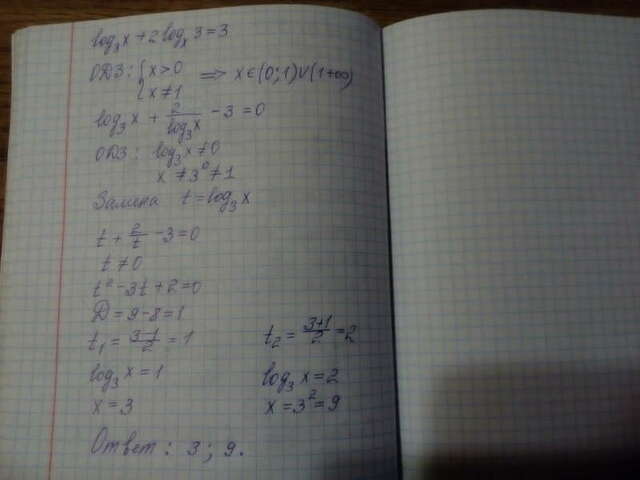 log₃x + 2logₓ3 = 3
ОДЗ: { x > 0 x ≠ 1 ⟹ x ∈ (0; 1) ∪ (1 +∞)
log₃x + 2/log₃x - 3 = 0
ОДЗ: log₃x ≠ 0
x ≠ 3⁰ ≠ 1
Замена t = log₃x
t + 2/t - 3 = 0
t ≠ 0
t² - 3t + 2 = 0
D = 9 - 8 = 1
t₁ = (3-1)/2 = 1 t₂ = (3+1)/2 = 2
log₃x = 1 log₃x = 2
x = 3 x = 3² = 9
Ответ: 3; 9.